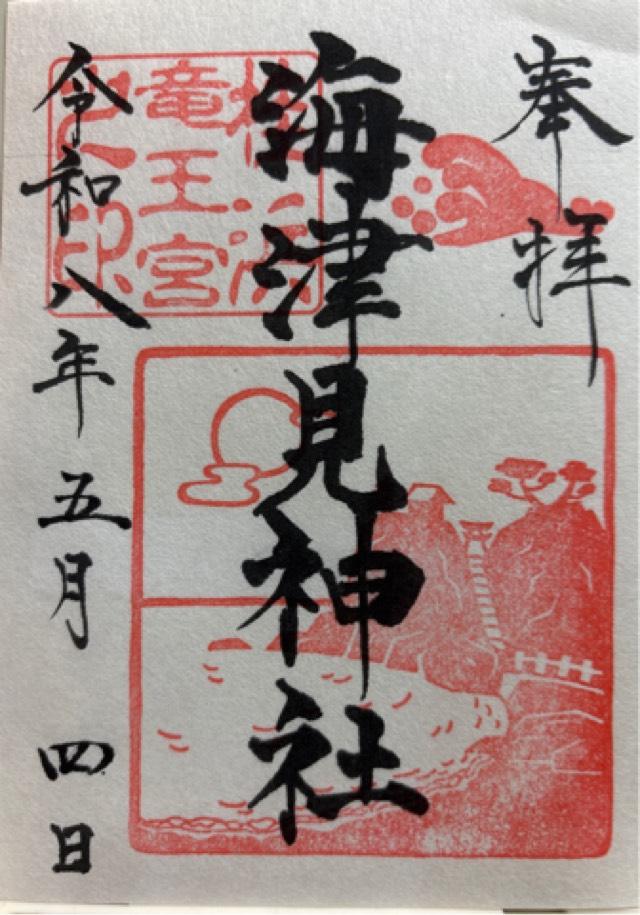 奉拝
海津見神社
桂浜
竜王宮
之印
令和八年五月四日